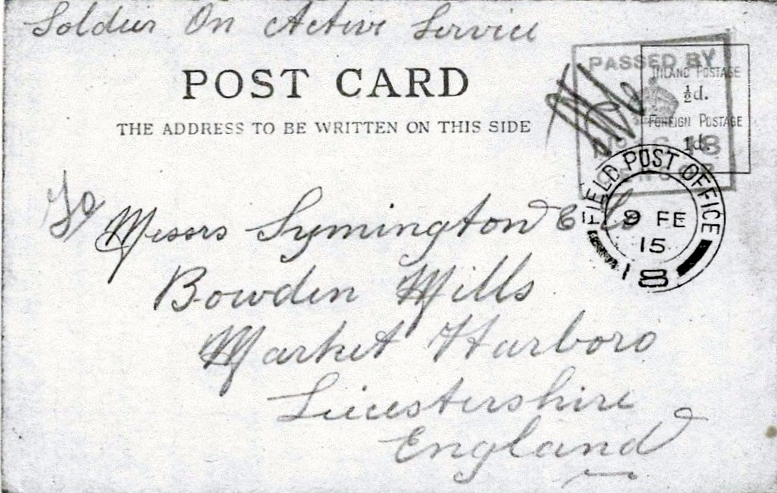 Soldier On Active Service
POST CARD
THE ADDRESS TO BE WRITTEN ON THIS SIDE
PASSED BY
INLAND POSTAGE
½d.
FOREIGN POSTAGE
1d.
FIELD POST OFFICE
9 FE
15
18
To Messrs Symington & Co
Bowden Mills
Market Harboro
Leicestershire
England